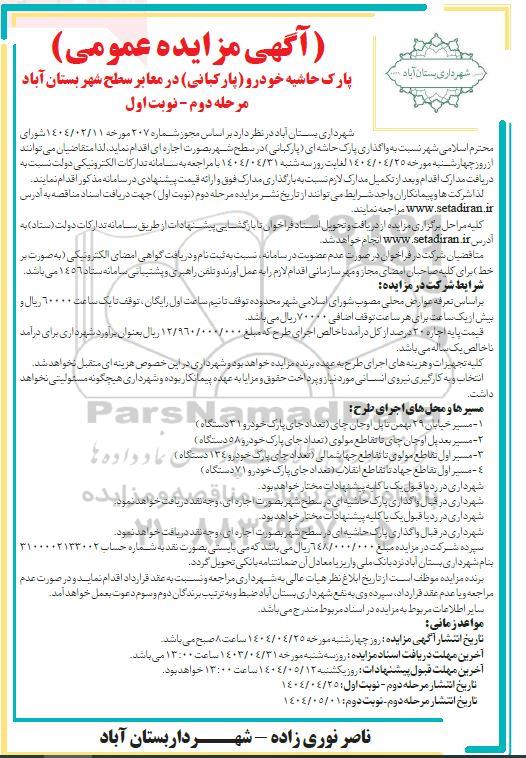 شهرداری بستان آباد
(آگهی مزایده عمومی)
پارک حاشیه خودرو (پارکبانی) در معابر سطح شهر بستان آباد
مرحله دوم - نوبت اول
شهرداری بستان آباد در نظر دارد بر اساس مجوز شماره ۲۰۷ مورخه ۱۴۰۴/۰۲/۱۱ شورای
محترم اسلامی شهر نسبت به واگذاری پارک حاشیه ای (پارکبانی) در سطح شهر بصورت اجاره ای اقدام نماید، لذا متقاضیان می توانند
از روز چهارشنبه مورخه ۱۴۰۴/۰۴/۲۵ لغایت روز سه شنبه ۱۴۰۴/۰۴/۳۱ با مراجعه به سامانه تدارکات الکترونیکی دولت نسبت به
دریافت مدارک اقدام و بعد از تکمیل مدارک لازم نسبت به بارگذاری مدارک فوق و ارائه قیمت پیشنهادی در سامانه مذکور اقدام نمایند.
لذا شرکت ها و پیمانکاران واجد شرایط می توانند از تاریخ نشر مزایده مرحله دوم (نوبت اول) جهت دریافت اسناد مناقصه به آدرس
www.setadiran.ir مراجعه نمایند.
کلیه مراحل برگزاری مزایده از دریافت و تحویل اسناد فراخوان تا بازگشایی پیشنهادات از طریق سامانه تدارکات دولت (ستاد) به
آدرس www.setadiran.ir انجام خواهد شد.
متقاضیان شرکت در فراخوان در صورت عدم عضویت در سامانه ، نسبت به ثبت نام و دریافت گواهی امضای الکترونیکی (به صورت بر
خط) برای کلیه صاحبان امضای مجاز و مهر سازمانی اقدام لازم را به عمل آورند و تلفن راهبری و پشتیبانی سامانه ستاد ۱۴۵۶ می باشد.
شرایط شرکت در مزایده:
بر اساس تعرفه عوارض محلی مصوب شورای اسلامی شهر محدوده توقف تا نیم ساعت اول رایگان ، توقف تا یک ساعت ۶۰۰۰۰ ریال و
بیش از یک ساعت برای هر ساعت توقف اضافی ۷۰۰۰۰ ریال می باشد.
قیمت پایه اجاره ۲۰ درصد از کل درآمد ناخالص اجرای طرح که مبلغ ۱۲/۹۶۰/۰۰۰/۰۰۰ ریال بعنوان برآورد شهرداری برای درآمد
ناخالص یک ساله می باشد.
کلیه تجهیزات و هزینه های اجرای طرح به عهده برنده مزایده خواهد بود و شهرداری در این خصوص هزینه ای متقبل نخواهد شد.
انتخاب و به کارگیری نیروی انسانی مورد نیاز و پرداخت حقوق و مزایا به عهده پیمانکار بوده و شهرداری هیچگونه مسئولیتی نخواهد
داشت.
مسیرها و محل های اجرای طرح:
۱- مسیر خیابان ۲۹ بهمن تا پل اوجان چای (تعداد جای پارک خودرو ۳۱ دستگاه)
۲- مسیر بعد پل اوجان چای تا تقاطع مولوی (تعداد جای پارک خودرو ۵۸ دستگاه)
۳- مسیر اول تقاطع مولوی تا تقاطع جهادشمالی (تعداد جای پارک خودرو ۱۳۴ دستگاه)
۴- مسیر اول تقاطع جهاد تا تقاطع انقلاب (تعداد جای پارک خودرو ۷۱ دستگاه)
شهرداری در رد یا قبول یک یا کلیه پیشنهادات مختار خواهد بود.
شهرداری در قبال واگذاری پارک حاشیه ای در سطح شهر بصورت اجاره ای، وجه نقد دریافت خواهد نمود.
شهرداری در رد یا قبول یک یا کلیه پیشنهادات مختار خواهد بود.
شهرداری در قبال واگذاری پارک حاشیه ای در سطح شهر بصورت اجاره ای، وجه نقد دریافت خواهد نمود.
سپرده شرکت در مزایده مبلغ ۶۴۸/۰۰۰/۰۰۰ ریال می باشد که می بایستی بصورت نقد به شماره حساب ۳۱۰۰۰۰۲۱۳۳۰۰۲
بنام شهرداری بستان آباد نزد بانک ملی واریز یا معادل آن ضمانتنامه بانکی تحویل گردد.
برنده مزایده موظف است از تاریخ ابلاغ نظر هیات عالی به شهرداری مراجعه و نسبت به عقد قرارداد اقدام نماید و در صورت عدم
مراجعه و یا عدم عقد قرارداد، سپرده وی به نفع شهرداری بستان آباد ضبط و به ترتیب برندگان دوم و سوم دعوت بعمل خواهد آمد.
سایر اطلاعات مربوط به مزایده در اسناد مربوط مندرج می باشد.
مواعد زمانی:
تاریخ انتشار آگهی مزایده : روز چهارشنبه مورخه ۱۴۰۴/۰۴/۲۵ ساعت ۸ صبح می باشد.
آخرین مهلت دریافت اسناد مزایده : روز سه شنبه مورخه ۱۴۰۳/۰۴/۳۱ ساعت ۱۳:۰۰ می باشد.
آخرین مهلت قبول پیشنهادات : روز یکشنبه ۱۴۰۴/۰۵/۱۲ ساعت ۱۳:۰۰ خواهد بود.
تاریخ انتشار مرحله دوم - نوبت اول: ۱۴۰۴/۰۴/۲۵
تاریخ انتشار مرحله دوم- نوبت دوم: ۱۴۰۴/۰۵/۰۱
ناصر نوری زاده – شهرداربستان آباد
ParsNamadData